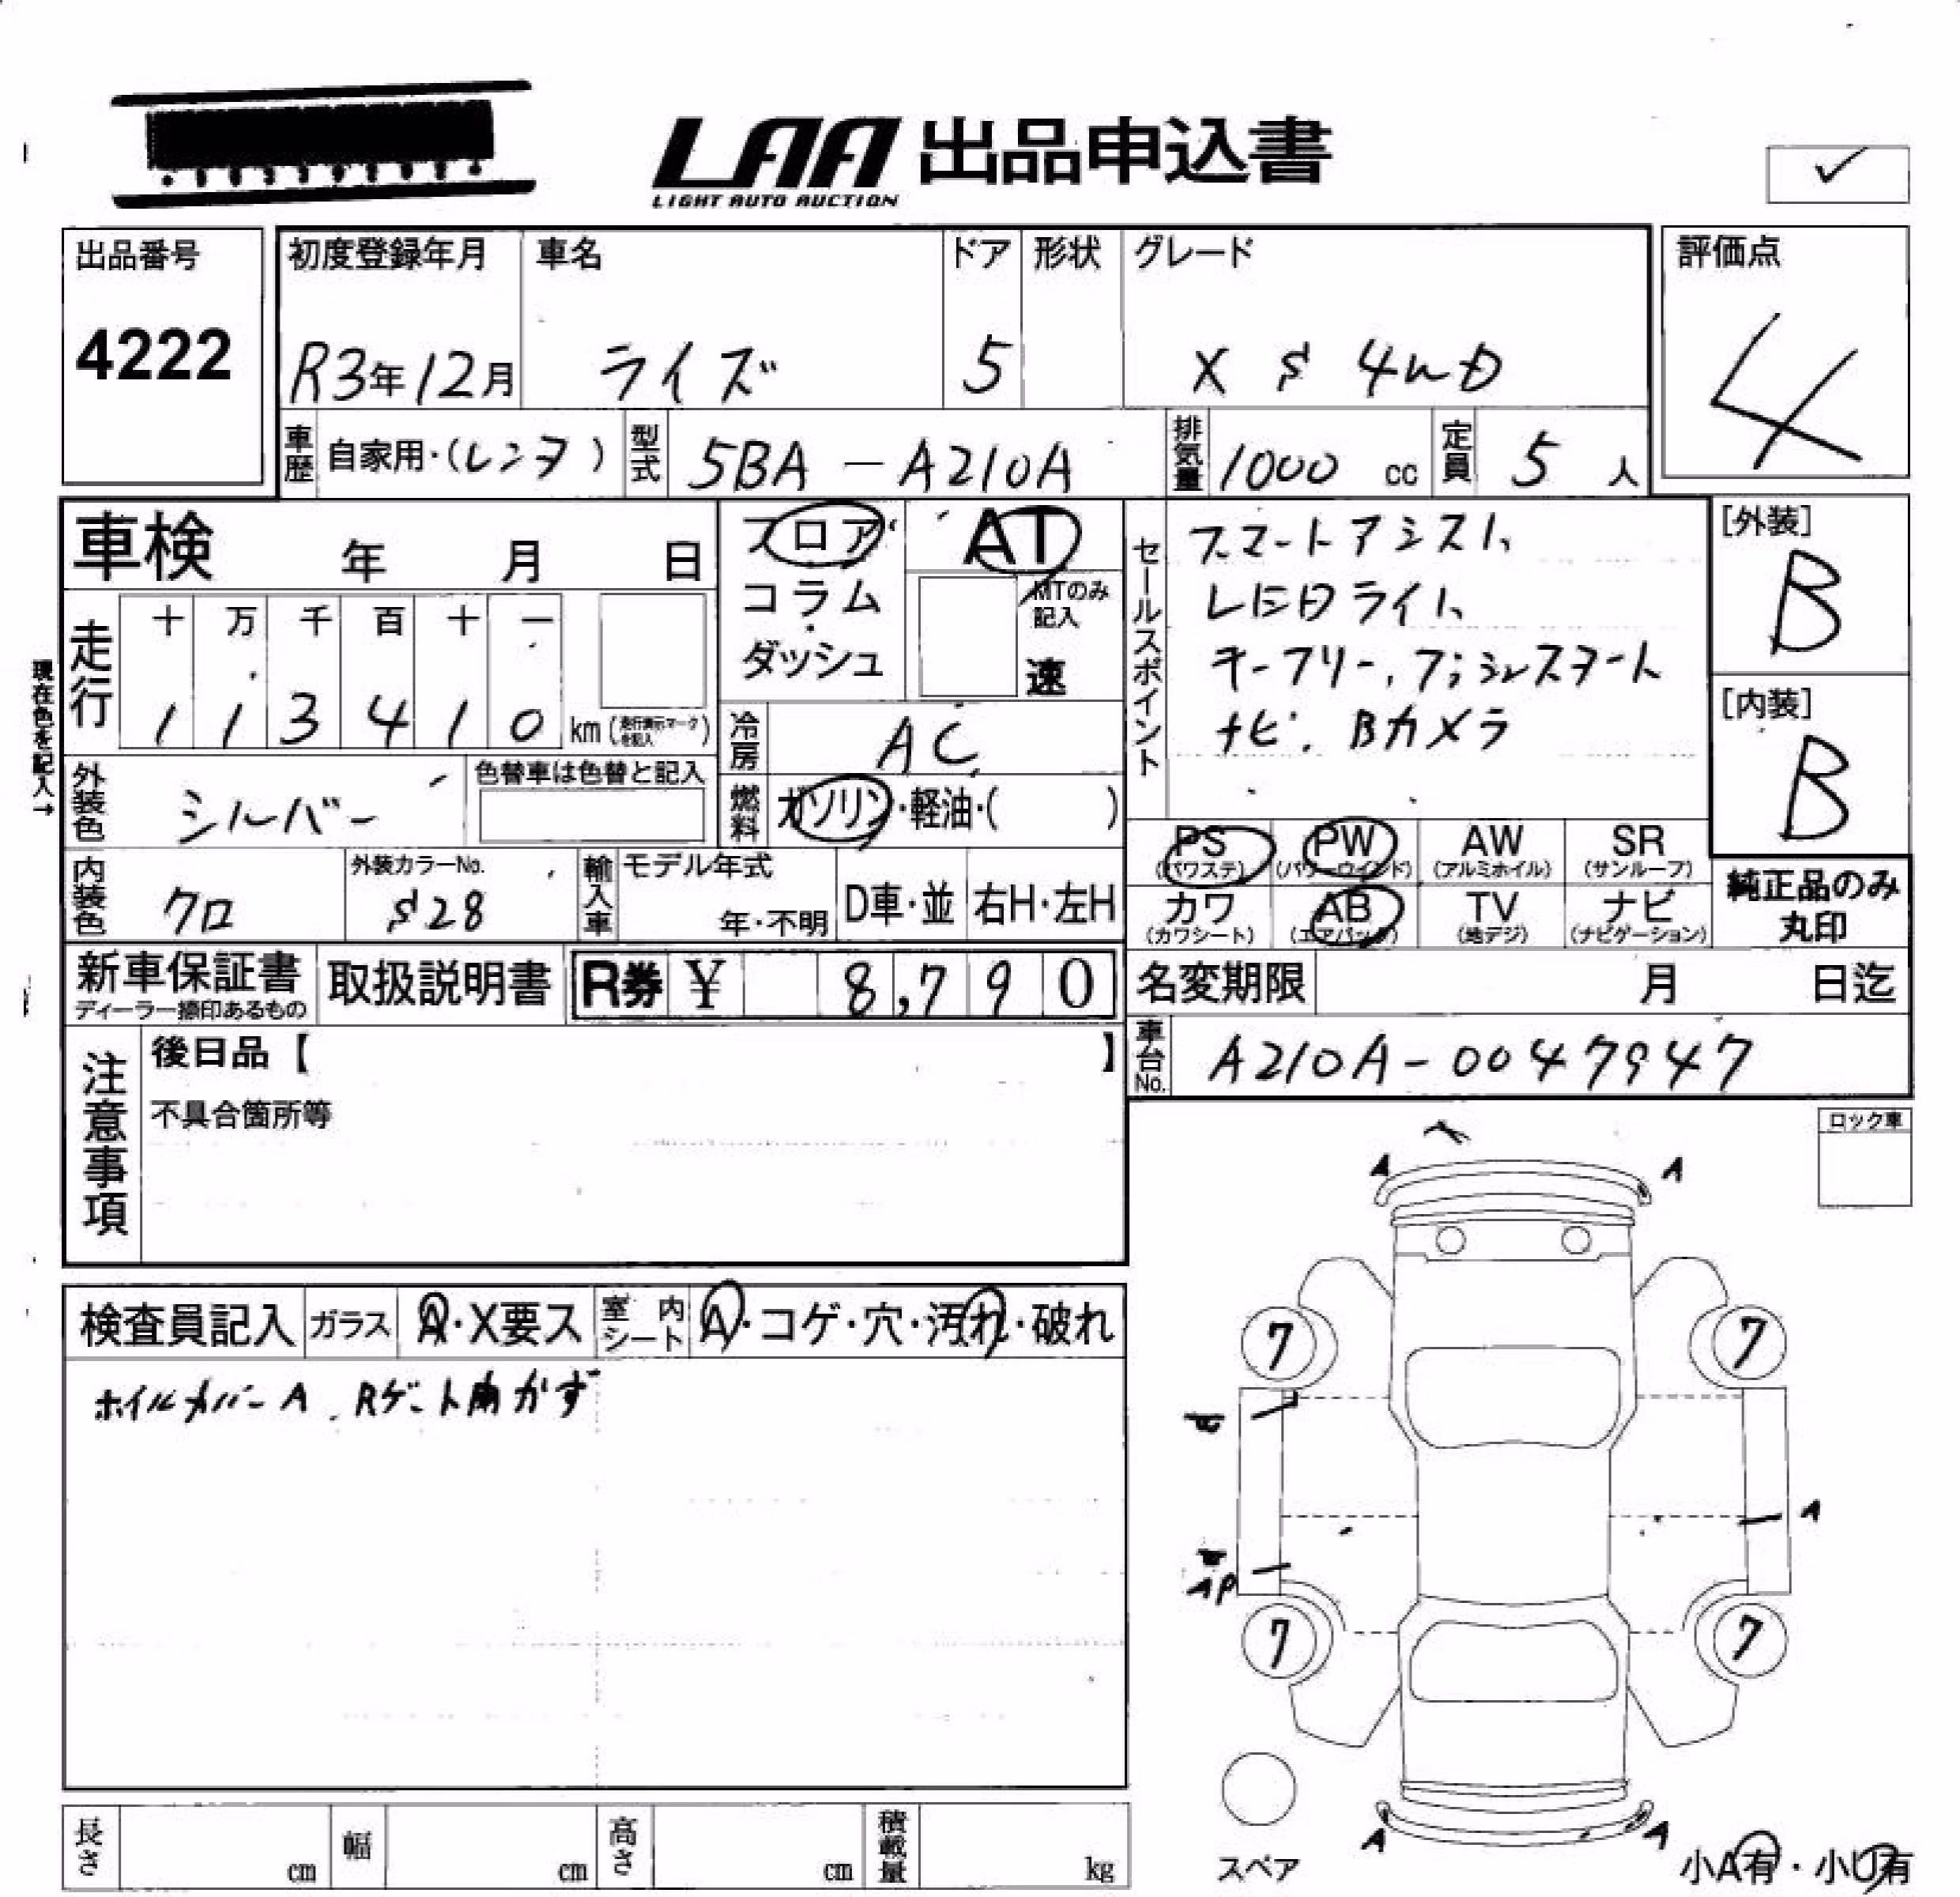 LAA 出品申込書
LIGHT AUTO AUCTION
出品番号 初度登録年月 車名 ドア 形状 グレード 評価点
4222 R3年12月 ライズ 5 X S 4WD 4
車歴 自家用・(レンタ) 型式 5BA-A210A 排気量 1000 cc 定員 5 人
車検 年 月 日
フロア AT
コラム・ MTのみ記入
ダッシュ 速
セールスポイント
スマートアシスト
LEDライト
キーフリー、プッシュスタート
ナビ、Bカメラ
[外装]
B
[内装]
B
現在色を記入→
走行 十 万 千 百 十 一
1 1 3 4 1 0 km (走行表示マークを記入)
冷房 AC
外装色 シルバー 色替車は色替と記入
燃料 ガソリン・軽油・( )
PS PW AW SR
(パワステ) (パワーウインド) (アルミホイル) (サンルーフ)
カワ AB TV ナビ
(カワシート) (エアバック) (地デジ) (ナビゲーション)
純正品のみ
丸印
内装色 クロ 外装カラーNo. S28 輸入車 モデル年式 年・不明 D車・並 右H・左H
新車保証書 取扱説明書 R券 ¥ 8,790 名変期限 月 日迄
ディーラー捺印あるもの
車台No. A210A-0047947
注意事項
後日品【 】
不具合箇所等
ロック車
A A
検査員記入 ガラス A・X要ス 室内シート A・コゲ・穴・汚れ・破れ
ホイルカバーA、Rゲート開かず
7 7
A
AP
7 7
A A
スペア
小A有・小U有
長さ cm 幅 cm 高さ cm 積載量 kg